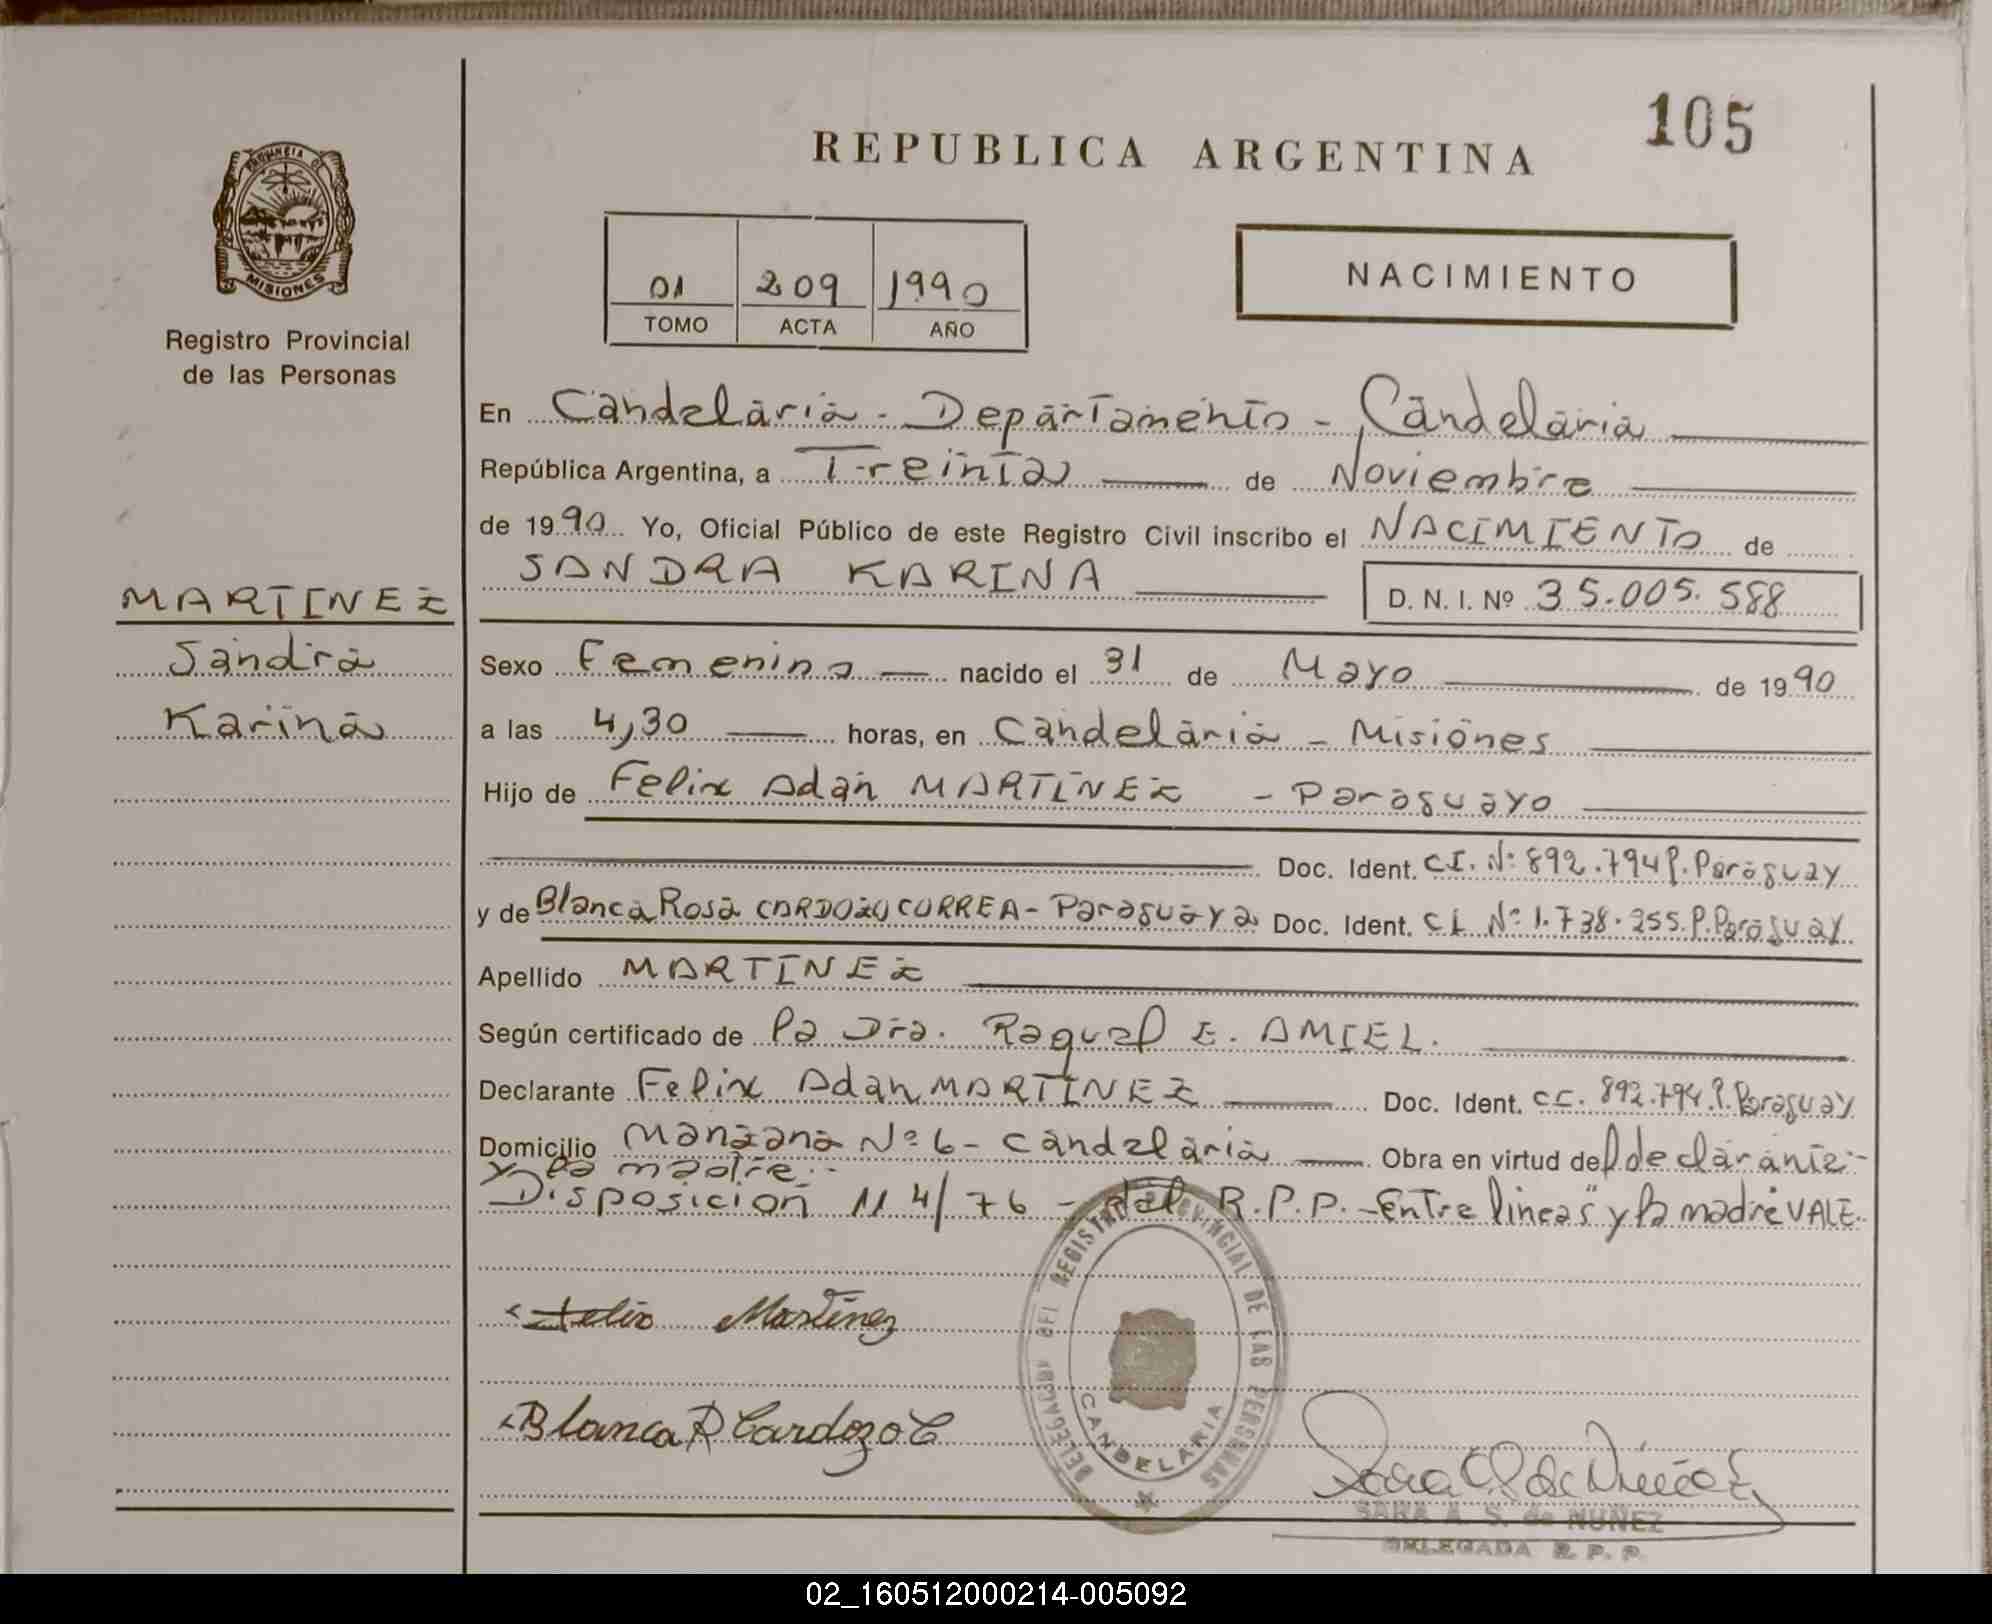 105
REPUBLICA ARGENTINA
PROVINCIA DE
MISIONES
Registro Provincial
de las Personas
01 209 1990
TOMO ACTA AÑO
NACIMIENTO
En Candelaria - Departamento - Candelaria
República Argentina, a Treinta de Noviembre
de 1990 Yo, Oficial Público de este Registro Civil inscribo el NACIMIENTO de
SANDRA KARINA D. N. I. Nº 35.005.588
MARTINEZ
Sandra
Karina
Sexo Femenino nacido el 31 de Mayo de 1990
a las 4,30 horas, en Candelaria - Misiones
Hijo de Felix Adan MARTINEZ - Paraguayo
Doc. Ident. C.I. Nº 892.794 P. Paraguay
y de Blanca Rosa CARDOZO CORREA - Paraguaya Doc. Ident. C.I. Nº 1.738.255. P. Paraguay
Apellido MARTINEZ
Según certificado de la Dra. Raquel E. AMIEL.
Declarante Felix Adan MARTINEZ Doc. Ident. C.C. 892.794. P. Paraguay
Domicilio Manzana Nº 6 - Candelaria Obra en virtud del declarante -
y la madre -
Disposicion 114/76 - del R.P.P. - Entre lineas "y la madre" VALE.
Felix Martinez
Blanca R Cardozo C
DELEGACION DEL REGISTRO PROVINCIAL DE LAS PERSONAS
CANDELARIA
SARA A. S. de NUÑEZ
DELEGADA R. P. P.
02_160512000214-005092